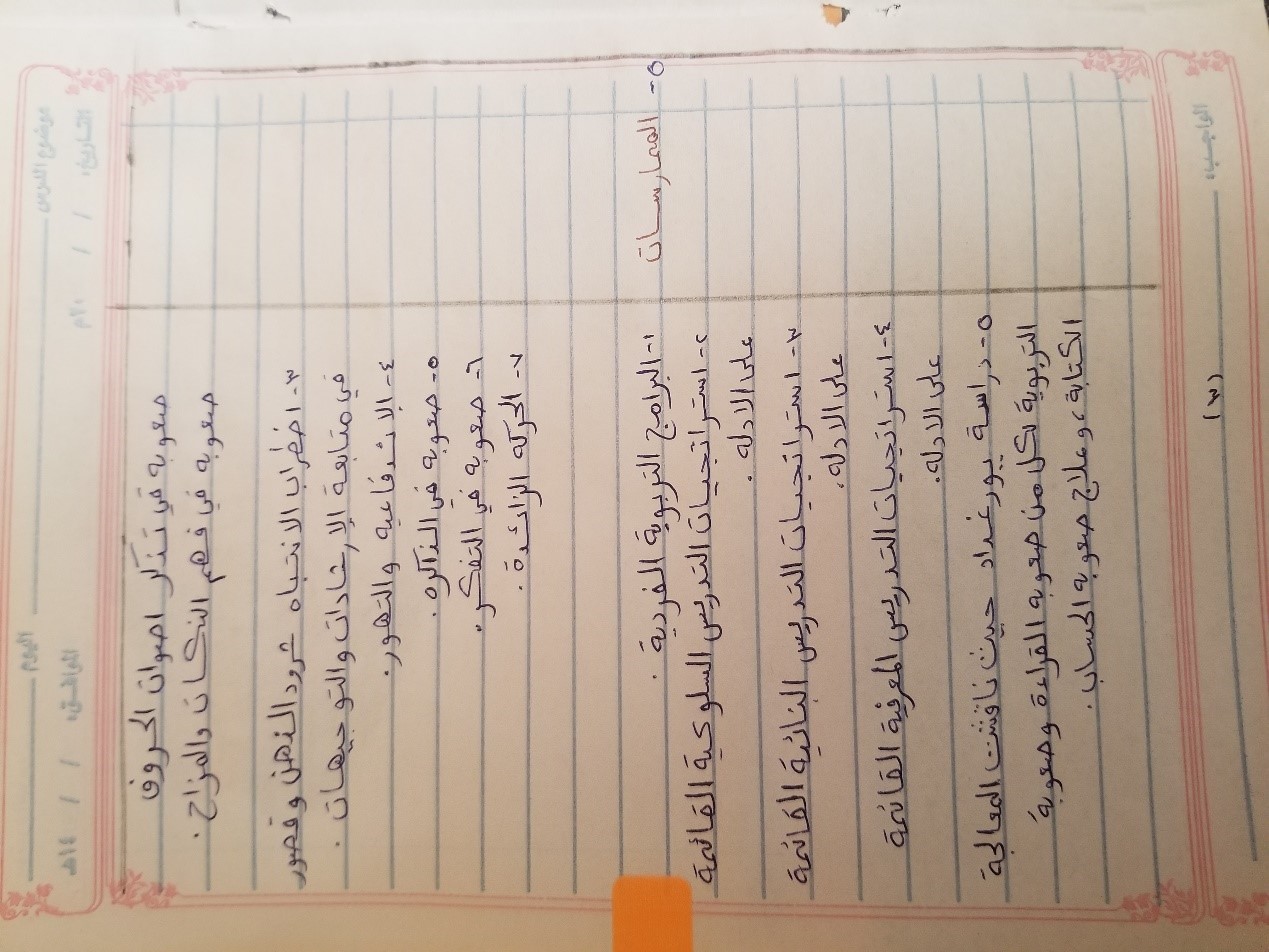 اليوم
موضوع الدرس
الموافق: / / ١٤هـ
التاريخ: / / ٢٠م
صعوبه في تذكر اصوات الحروف
صعوبه في فهم النكات والمزاح.
٣- اضطراب الانتباه شرود الذهن وقصور
في متابعة الإرشادات والتوجيهات.
٤- الاندفاعيه والتهور.
٥- صعوبه في الذاكره.
٦- صعوبه في التفكير.
٧- الحركه الزائدة.
٥- الممارسات
١- البرامج التربوية الفردية.
٢- استراتجيات التدريس السلوكية القائمة
على الادلة.
٣- استراتجيات التدريس البنائية القائمة
على الادلة.
٤- استراتجيات التدريس المعرفية القائمة
على الادلة.
٥- دراسة بيورغداد حيث ناقشت المعالجة
التربوية لكل من صعوبه القراءة وصعوبة
الكتابة، وعلاج صعوبه الحساب.
الواجب:
(٣)